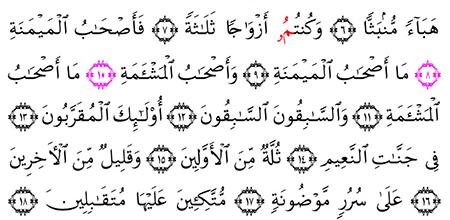 هَبَآءً مُّنۢبَثًّا ﴿٦﴾ وَكُنتُمُۥ أَزْوَٰجًا ثَلَٰثَةً ﴿٧﴾ فَأَصْحَٰبُ ٱلْمَيْمَنَةِ
﴿٨﴾ مَا أَصْحَٰبُ ٱلْمَيْمَنَةِ ﴿٩﴾ وَأَصْحَٰبُ ٱلْمَشْـَٔمَةِ ﴿١٠﴾ مَا أَصْحَٰبُ
ٱلْمَشْـَٔمَةِ ﴿١١﴾ وَٱلسَّٰبِقُونَ ٱلسَّٰبِقُونَ ﴿١٢﴾ أُوْلَٰٓئِكَ ٱلْمُقَرَّبُونَ ﴿١٣﴾
فِى جَنَّٰتِ ٱلنَّعِيمِ ﴿١٤﴾ ثُلَّةٌ مِّنَ ٱلْأَوَّلِينَ ﴿١٥﴾ وَقَلِيلٌ مِّنَ ٱلْأَخِرِينَ
﴿١٦﴾ عَلَىٰ سُرُرٍ مَّوْضُونَةٍ ﴿١٧﴾ مُتَّكِـِٔينَ عَلَيْهَا مُتَقَٰبِلِينَ ﴿١٨﴾